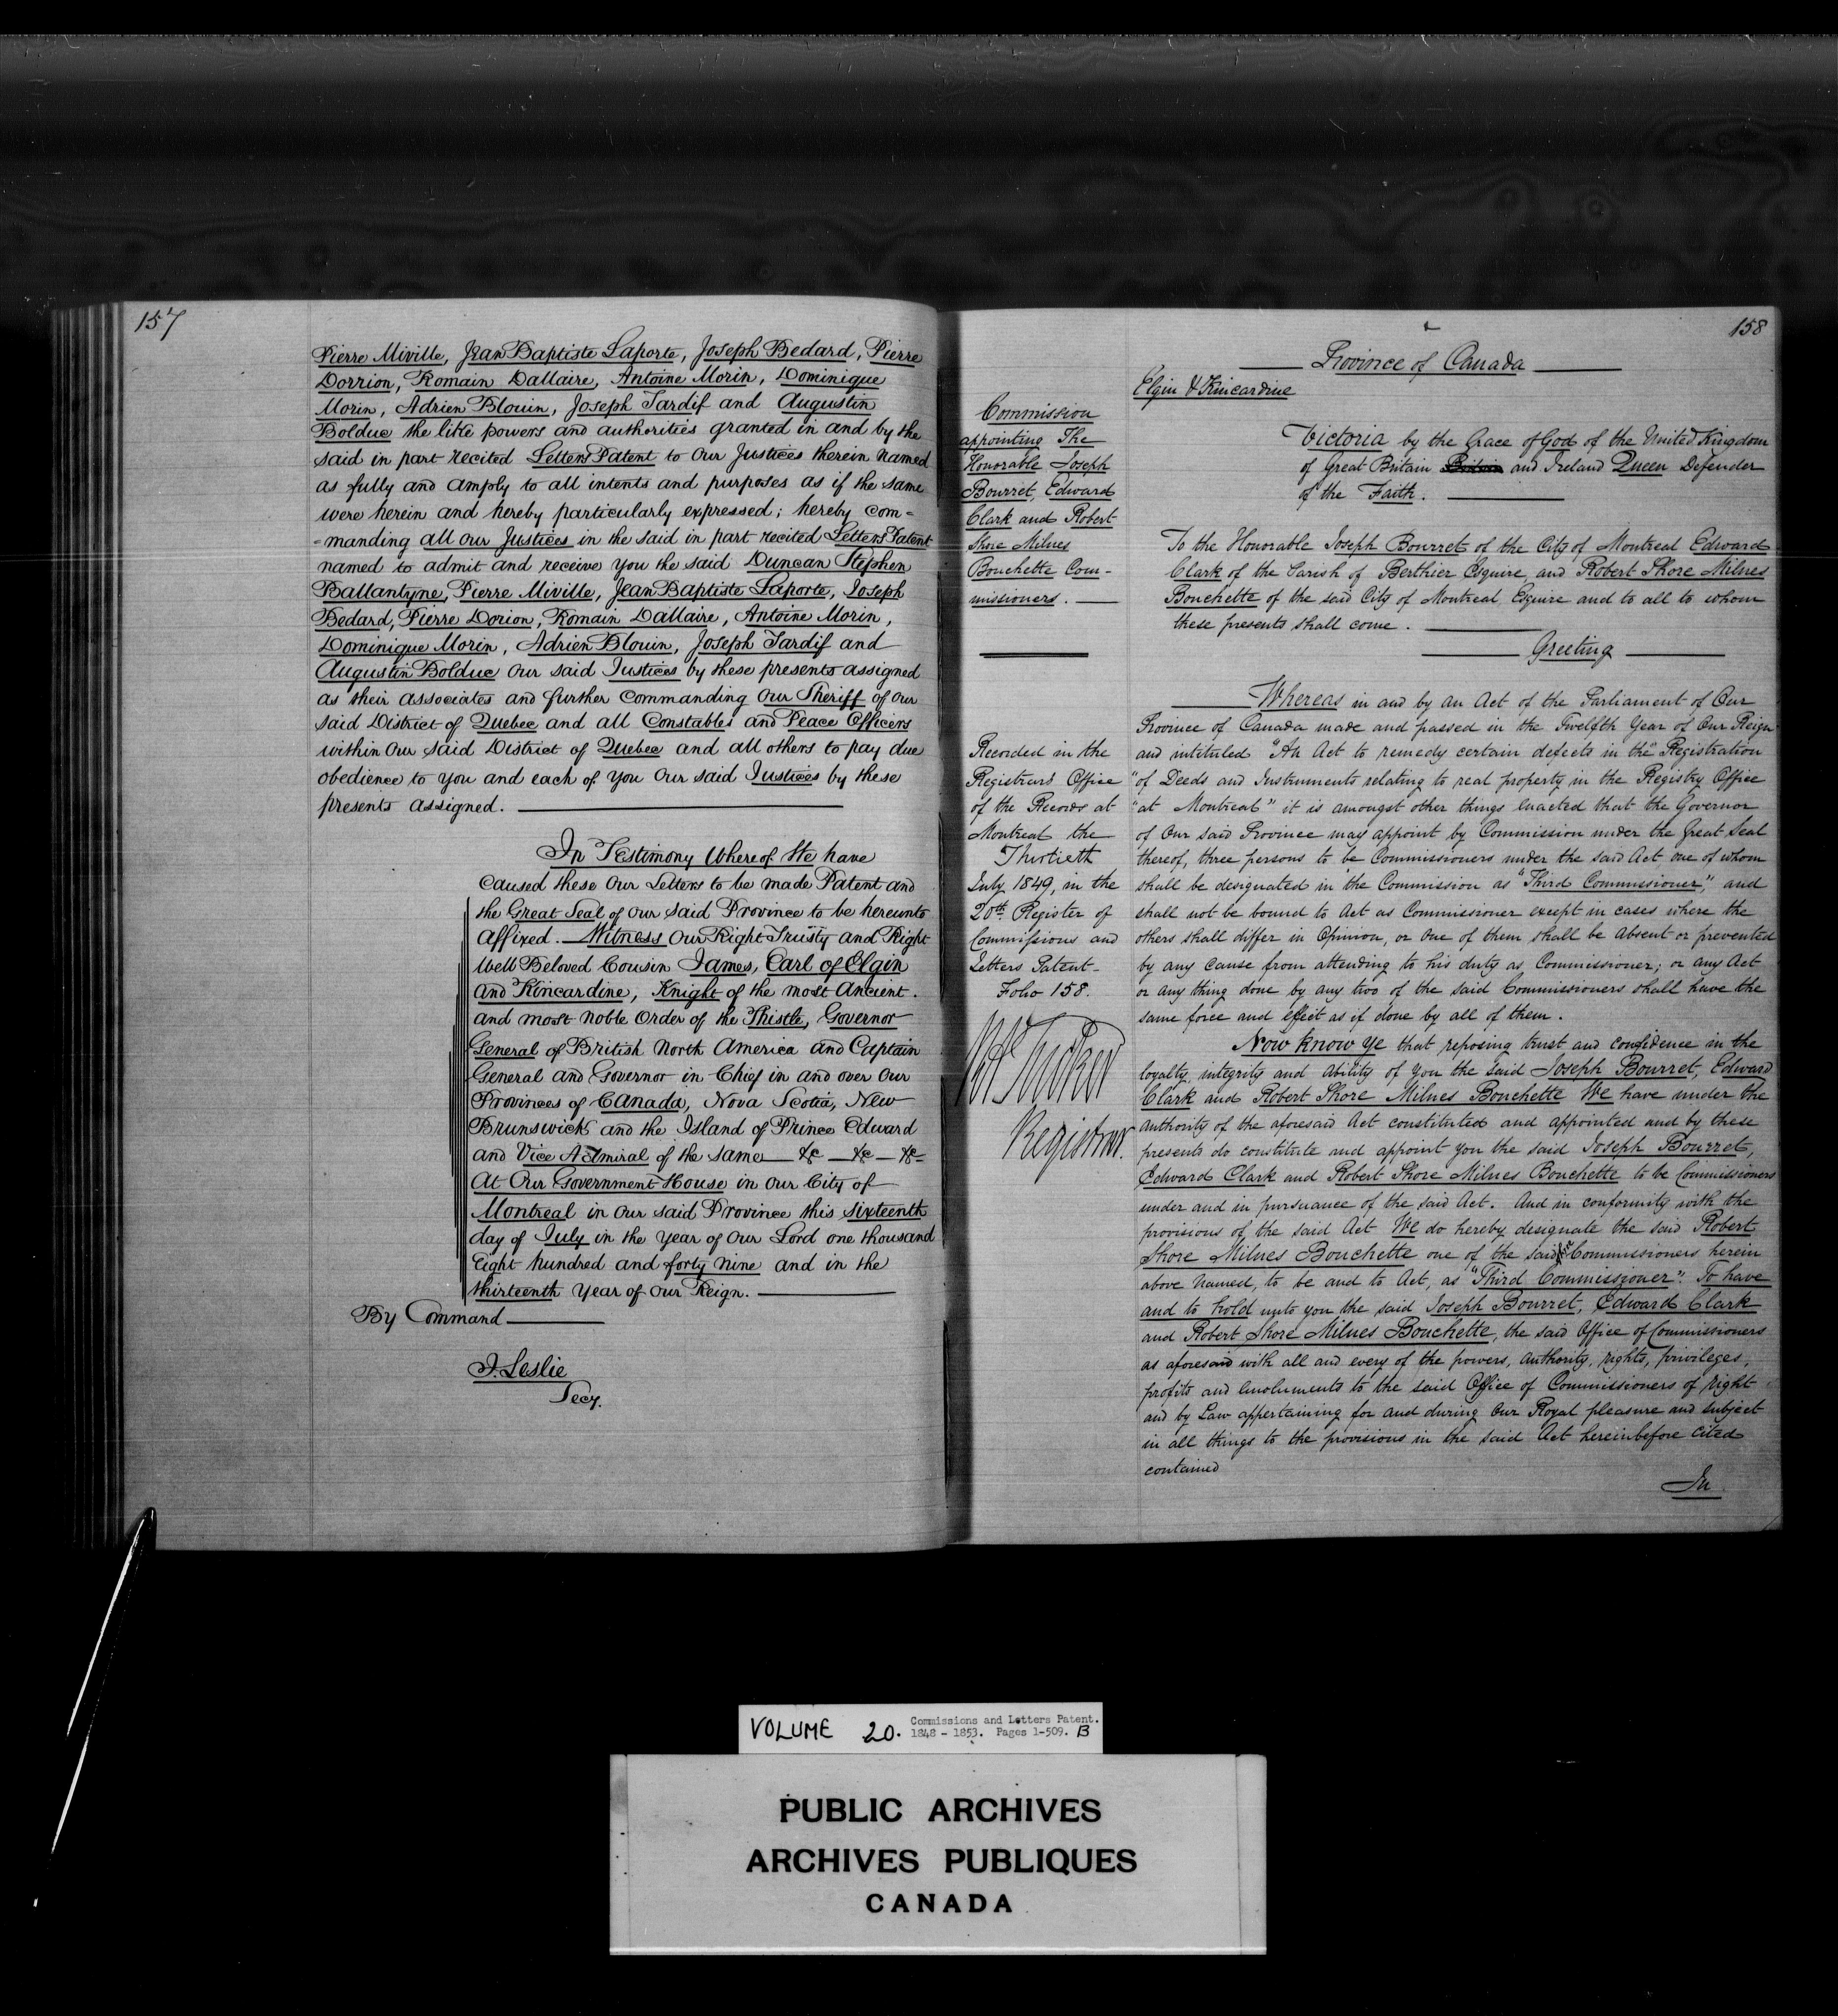 157
Pierre Miville, Jean Baptiste Laporte, Joseph Bedard, Pierre
Dorrion, Romain Dallaire, Antoine Morin, Dominique
Morin, Adrien Blouin, Joseph Tardif and Augustin
Bolduc the like powers and authorities granted in and by the
said in part recited Letters Patent to our Justices therein named
as fully and amply to all intents and purposes as if the same
were herein and hereby particularly expressed; hereby com=
=manding all our Justices in the said in part recited Letters Patent
named to admit and receive you the said Duncan Stephen
Ballantyne, Pierre Miville, Jean Baptiste Laporte, Joseph
Bedard, Pierre Dorion, Romain Dallaire, Antoine Morin,
Dominique Morin, Adrien Blouin, Joseph Tardif and
Augustin Bolduc our said Justices by these presents assigned
as their associates and further commanding our Sheriff of our
said District of Quebec and all Constables and Peace Officers
within our said District of Quebec and all others to pay due
obedience to you and each of you our said Justices by these
presents assigned.
In Testimony Whereof We have
caused these our Letters to be made Patent and
the Great Seal of our said Province to be hereunto
affixed. Witness our Right Trusty and Right
Well Beloved Cousin James, Earl of Elgin
and Kincardine, Knight of the most Ancient
and most noble Order of the Thistle, Governor
General of British North America and Captain
General and Governor in Chief in and over our
Provinces of Canada, Nova Scotia, New
Brunswick and the Island of Prince Edward
and Vice Admiral of the same &c — &c — &c
At our Government House in our City of
Montreal in our said Province this sixteenth
day of July in the year of our Lord one thousand
Eight hundred and forty nine and in the
thirteenth year of our Reign.
By Command
J. Leslie
Secy.
158
Province of Canada
Elgin & Kincardine
Commission
appointing The
Honorable Joseph
Bourret, Edward
Clark and Robert
Shore Milnes
Bouchette Com-
missioners.
Recorded in the
Registrars Office
of the Records at
Montreal the
Thirtieth
July 1849, in the
20th Register of
Commissions and
Letters Patent
Folio 158.
Tucker
Registrar.
Victoria by the Grace of God of the United Kingdom
of Great Britain and Ireland Queen Defender
of the Faith.
To the Honorable Joseph Bourret of the City of Montreal Edward
Clark of the Parish of Berthier Esquire, and Robert Shore Milnes
Bouchette of the said City of Montreal, Esquire and to all to whom
these presents shall come.
Greeting
Whereas in and by an Act of the Parliament of Our
Province of Canada made and passed in the Twelfth Year of Our Reign
and intituled "An Act to remedy certain defects in the" Registration
"of Deeds and Instruments relating to real property in the Registry Office
"at Montreal" it is amongst other things enacted that the Governor
of Our said Province may appoint by Commission under the Great Seal
thereof, three persons to be Commissioners under the said Act one of whom
shall be designated in the Commission as "Third Commissioner," and
shall not be bound to Act as Commissioner except in cases where the
others shall differ in Opinion, or one of them shall be absent or prevented
by any cause from attending to his duty as Commissioner; or any Act
or any thing done by any two of the said Commissioners shall have the
same force and effect as if done by all of them.
Now know Ye that reposing trust and confidence in the
loyalty, integrity and ability of you the said Joseph Bourret, Edward
Clark and Robert Shore Milnes Bouchette We have under the
authority of the aforesaid Act constituted and appointed and by these
presents do constitute and appoint you the said Joseph Bourret,
Edward Clark and Robert Shore Milnes Bouchette to be Commissioners
under and in pursuance of the said Act. And in conformity with the
provisions of the said Act We do hereby designate the said Robert
Shore Milnes Bouchette one of the said Commissioners herein
above named, to be and to Act, as "Third Commissioner". To have
and to hold unto you the said Joseph Bourret, Edward Clark
and Robert Shore Milnes Bouchette, the said Office of Commissioners
as aforesaid with all and every of the powers, authority, rights, privileges,
profits and emoluments to the said Office of Commissioners of right
and by Law appertaining for and during Our Royal pleasure and subject
in all things to the provisions in the said Act hereinbefore cited
contained
In
VOLUME 20. Commissions and Letters Patent.
1848 - 1853. Pages 1-509. B
PUBLIC ARCHIVES
ARCHIVES PUBLIQUES
CANADA